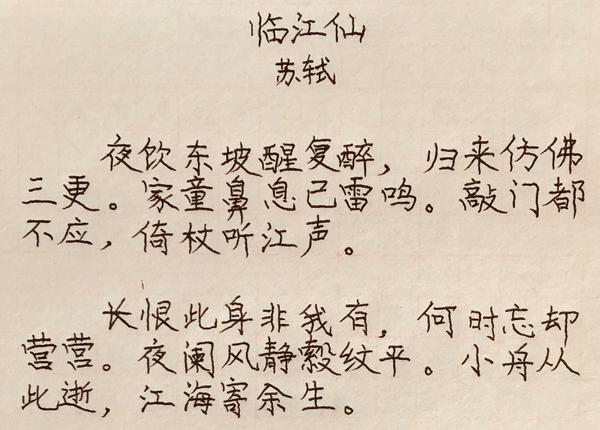 临江仙
苏轼
夜饮东坡醒复醉，归来仿佛
三更。家童鼻息已雷鸣。敲门都
不应，倚杖听江声。
长恨此身非我有，何时忘却
营营。夜阑风静縠纹平。小舟从
此逝，江海寄余生。